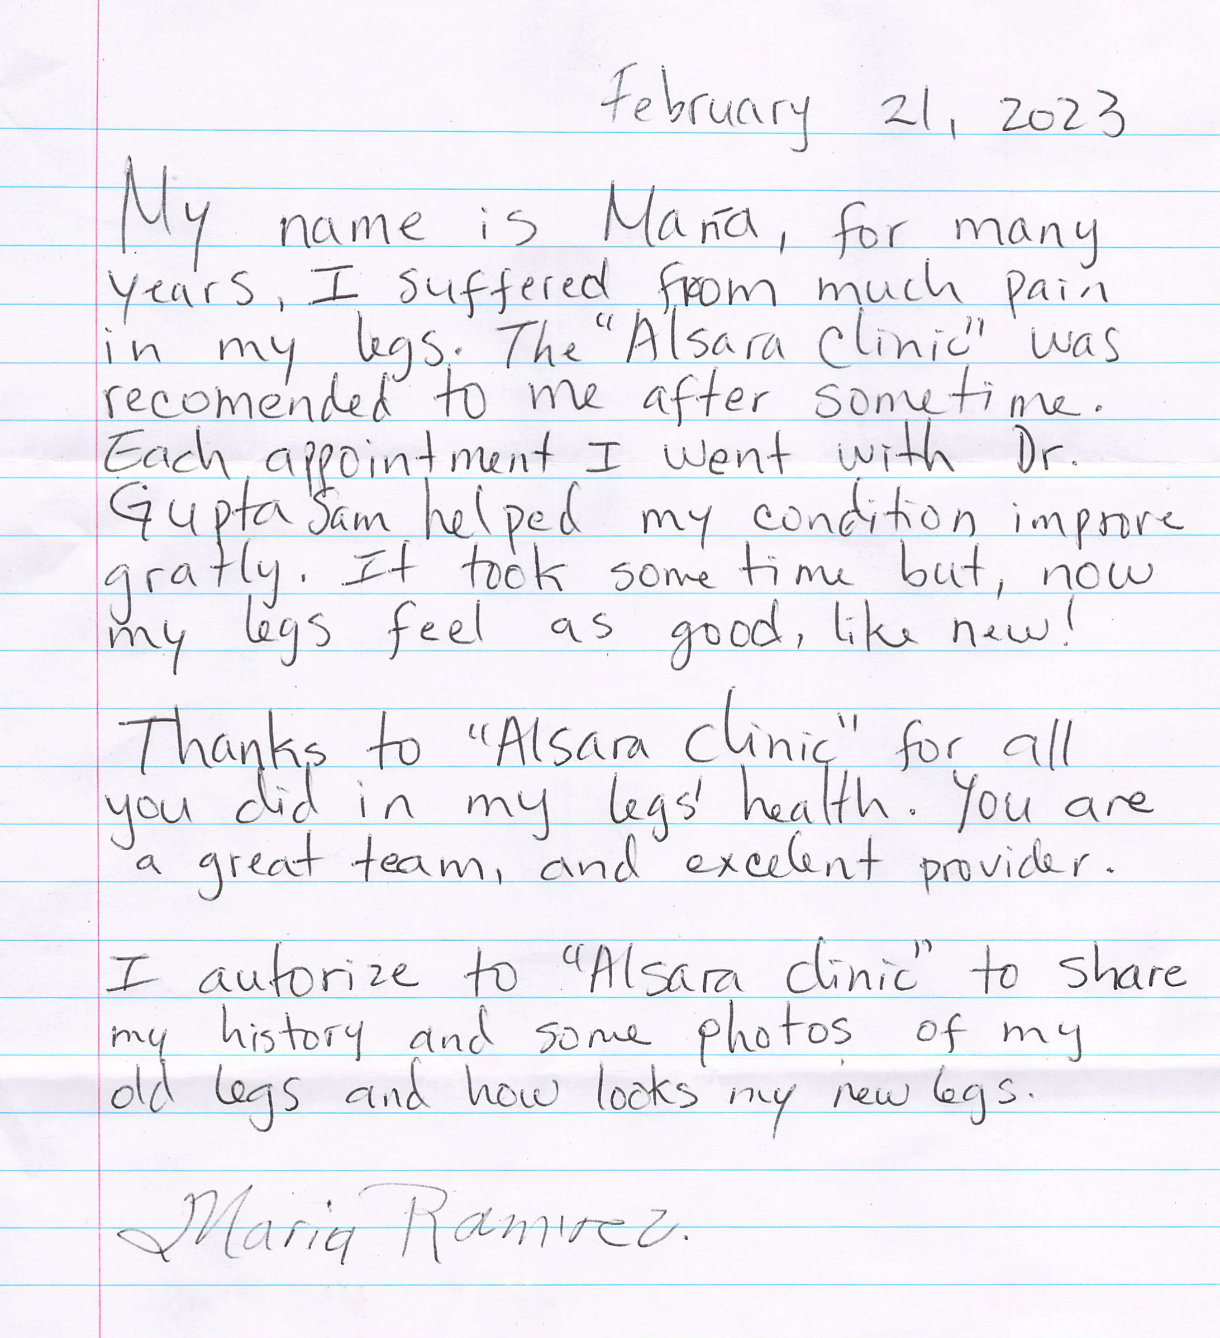 February 21, 2023
My name is María, for many
years, I suffered from much pain
in my legs. The "Alsara Clinic" was
recomended to me after sometime.
Each appointment I went with Dr.
Gupta Sam helped my condition improve
gratly. It took some time but, now
my legs feel as good, like new!
Thanks to "Alsara Clinic" for all
you did in my legs' health. You are
a great team, and excelent provider.
I autorize to "Alsara Clinic" to share
my history and some photos of my
old legs and how looks my new legs.
Maria Ramirez.